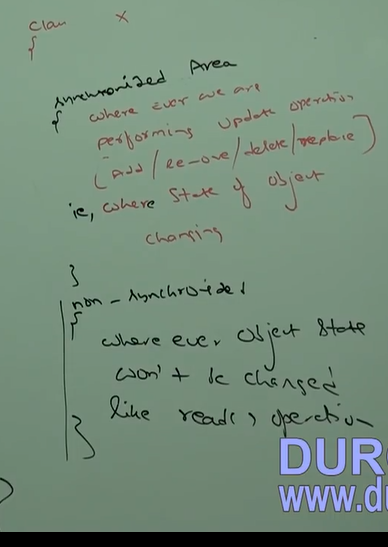 class X
{
synchronized Area
{
where ever we are
performing update operation
(Add/remove/delete/replace)
ie, where state of object
changing
}
non-synchronized
{
where ever object state
won't be changed
like read() operation
}
DUR
www.du